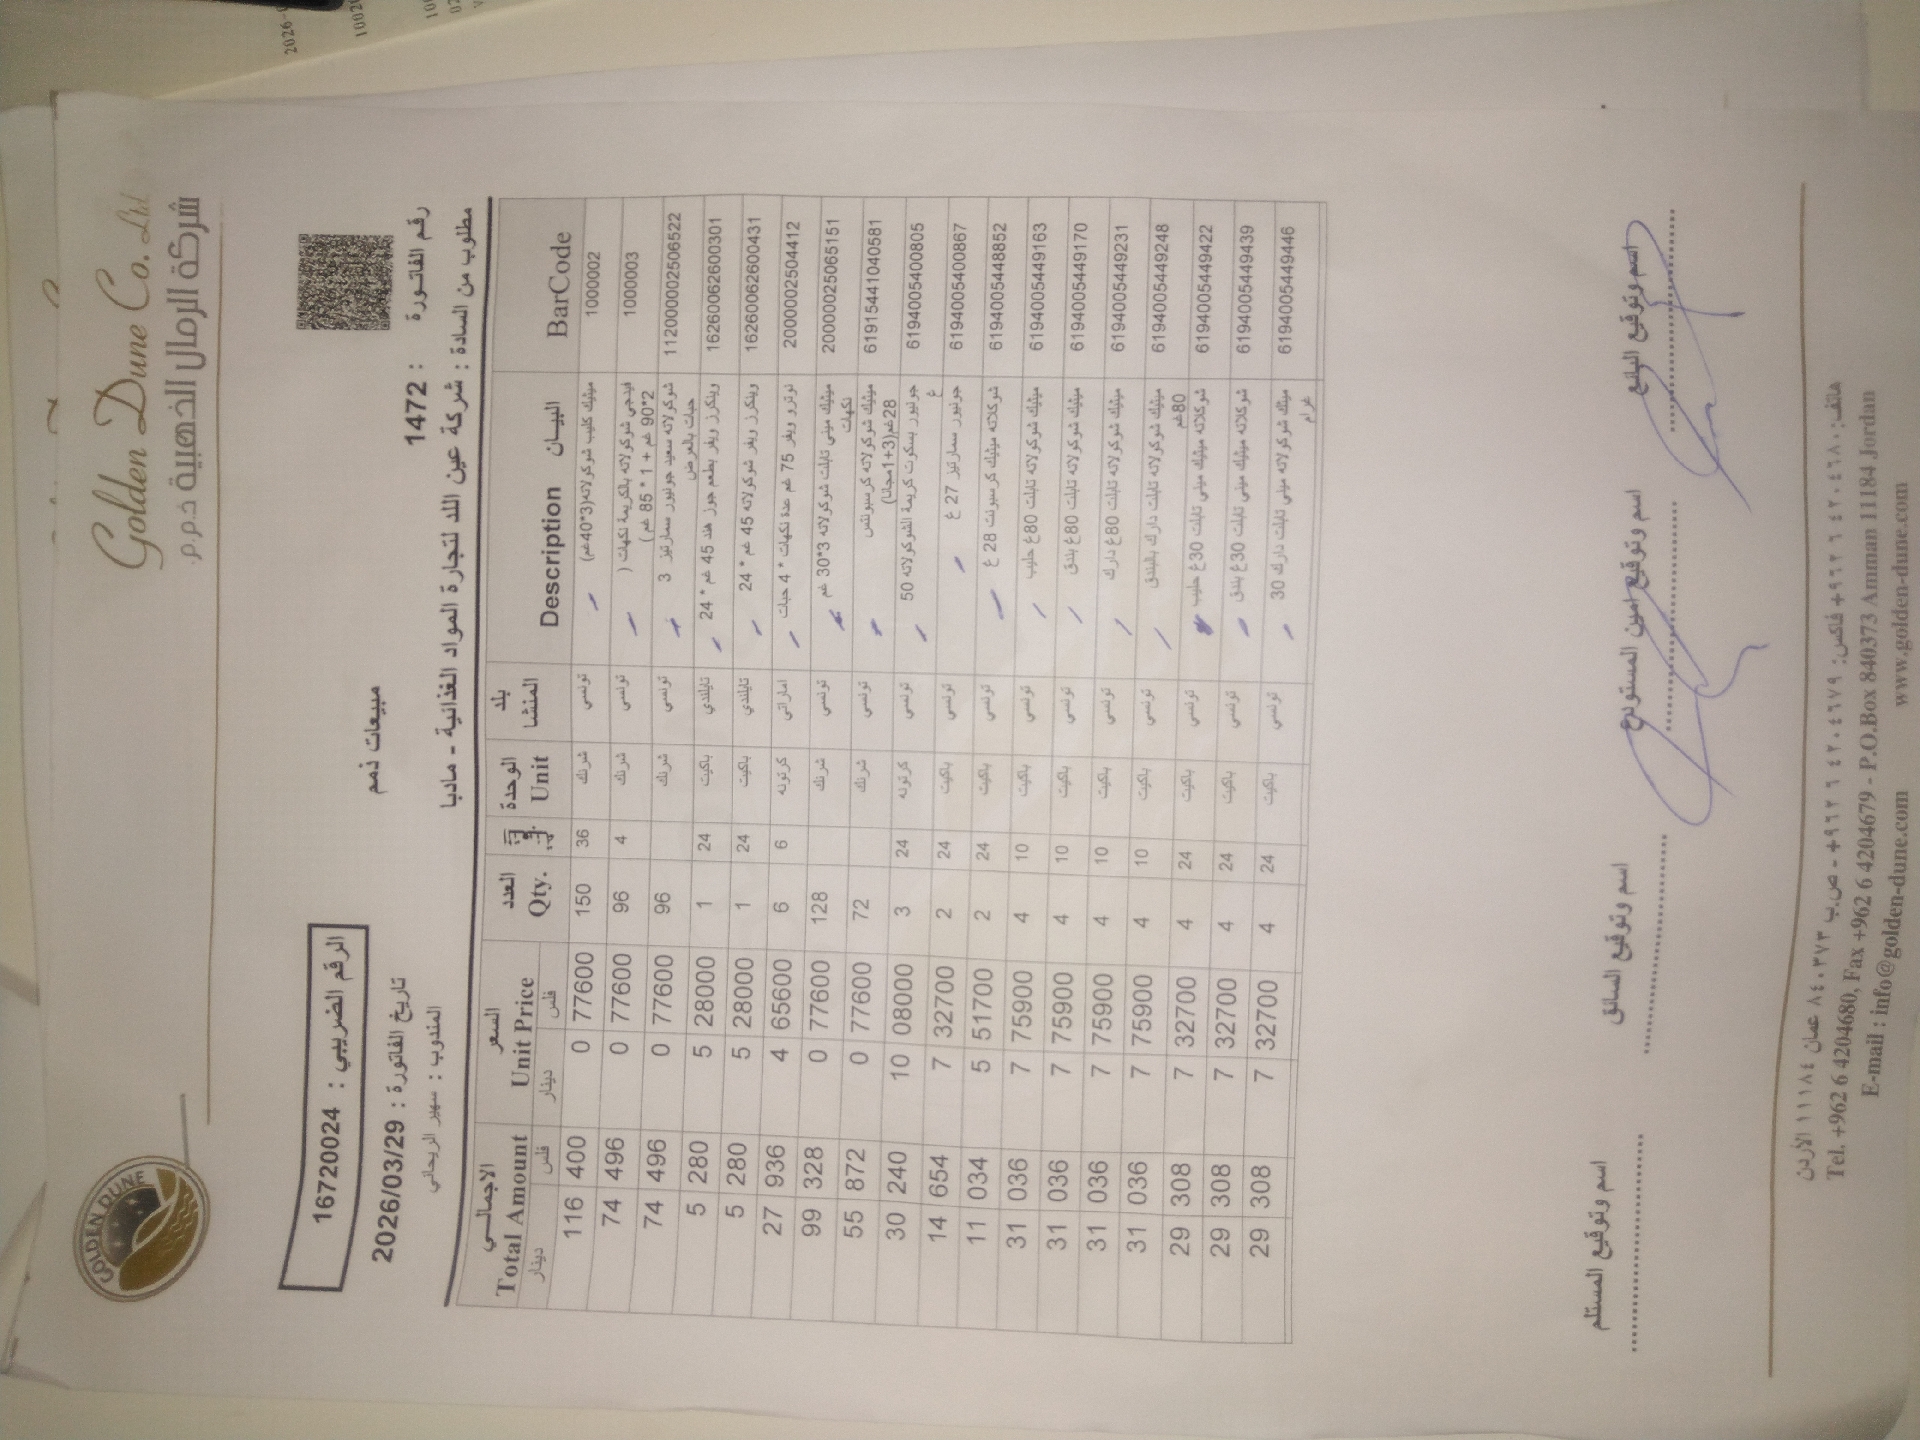 Golden Dune Co. Ltd
شركة الرمال الذهبية ذ.م.م
GOLDEN DUNE
الرقم الضريبي : 16720024
مبيعات ذمم
رقم الفاتورة : 1472
تاريخ الفاتورة : 2026/03/29
مطلوب من السادة : شركة عين اللد لتجارة المواد الغذائية - مادبا
المندوب : سهير الريحاني
BarCode البيان Description بلد المنشا الوحدة Unit العدد Qty. السعر Unit Price الاجمالي Total Amount
فلس دينار فلس دينار
1000002 ميثيك كليب شوكولاته(3*40غم) تونسي شرنك 36 150 77600 0 400 116
1000003 فيدجي شوكولاته بالكريمة نكهات ( 2*90 غم + 1 * 85 غم ) تونسي شرنك 4 96 77600 0 496 74
112000002506522 شوكولاته سعيد جونيور سمارتيز 3 حبات بالعرض تونسي شرنك 96 77600 0 496 74
1626006260​0301 ويلكرز ويفر بطعم جوز هند 45 غم * 24 تايلندي باكيت 24 1 28000 5 280 5
16260062600431 ويلكرز ويفر شوكولاته 45 غم * 24 تايلندي باكيت 24 1 28000 5 280 5
2000002504412 نوترو ويفر 75 غم عدة نكهات * 4 حبات اماراتي كرتونه 6 6 65600 4 936 27
2000002506​5151 ميثيك ميني تابلت شوكولاته 3*30 غم نكهات تونسي شرنك 128 77600 0 328 99
6191544104​0581 ميثيك شوكولاته كرسبونتس 28غم(3+1مجانا) تونسي شرنك 72 77600 0 872 55
6194005400805 جونيور بسكوت كريمة الشوكولاته 50 غ تونسي كرتونه 24 3 08000 10 240 30
6194005400867 جونيور سمارتيز 27 غ تونسي باكيت 24 2 32700 7 654 14
6194005448852 شوكلاته ميثيك كرسبونت 28 غ تونسي باكيت 24 2 51700 5 034 11
6194005449163 ميثيك شوكولاته تابلت 80غ حليب تونسي باكيت 10 4 75900 7 036 31
6194005449170 ميثيك شوكولاته تابلت 80غ بندق تونسي باكيت 10 4 75900 7 036 31
6194005449231 ميثيك شوكولاته تابلت 80غ دارك تونسي باكيت 10 4 75900 7 036 31
6194005449248 ميثيك شوكولاته تابلت دارك بالبندق 80غم تونسي باكيت 10 4 75900 7 036 31
6194005449422 شوكلاته ميثيك ميني تابلت 30غ حليب تونسي باكيت 24 4 32700 7 308 29
6194005449439 شوكلاته ميثيك ميني تابلت 30غ بندق تونسي باكيت 24 4 32700 7 308 29
6194005449446 ميثك شوكولاته ميني تابلت دارك 30 غرام تونسي باكيت 24 4 32700 7 308 29
اسم وتوقيع البائع
اسم وتوقيع امين المستودع
اسم وتوقيع السائق
اسم وتوقيع المستلم
هاتف: ٤٢٠٤٦٨٠ ٦ ٩٦٢+ فاكس: ٤٢٠٤٦٧٩ ٦ ٩٦٢+ - ص.ب ٨٤٠٣٧٣ عمان ١١١٨٤ الأردن
Tel. +962 6 4204680, Fax +962 6 4204679 - P.O.Box 840373 Amman 11184 Jordan
E-mail : info@golden-dune.com www.golden-dune.com